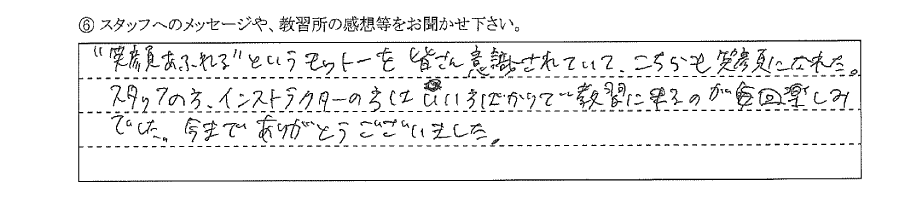 ⑥ スタッフへのメッセージや、教習所の感想等をお聞かせ下さい。
"笑顔あふれる"というモットーを皆さん意識されていて、こちらも笑顔になれた。
スタッフの方、インストラクターの方はいい方ばかりで教習に来るのが毎回楽しみ
でした。今までありがとうございました。